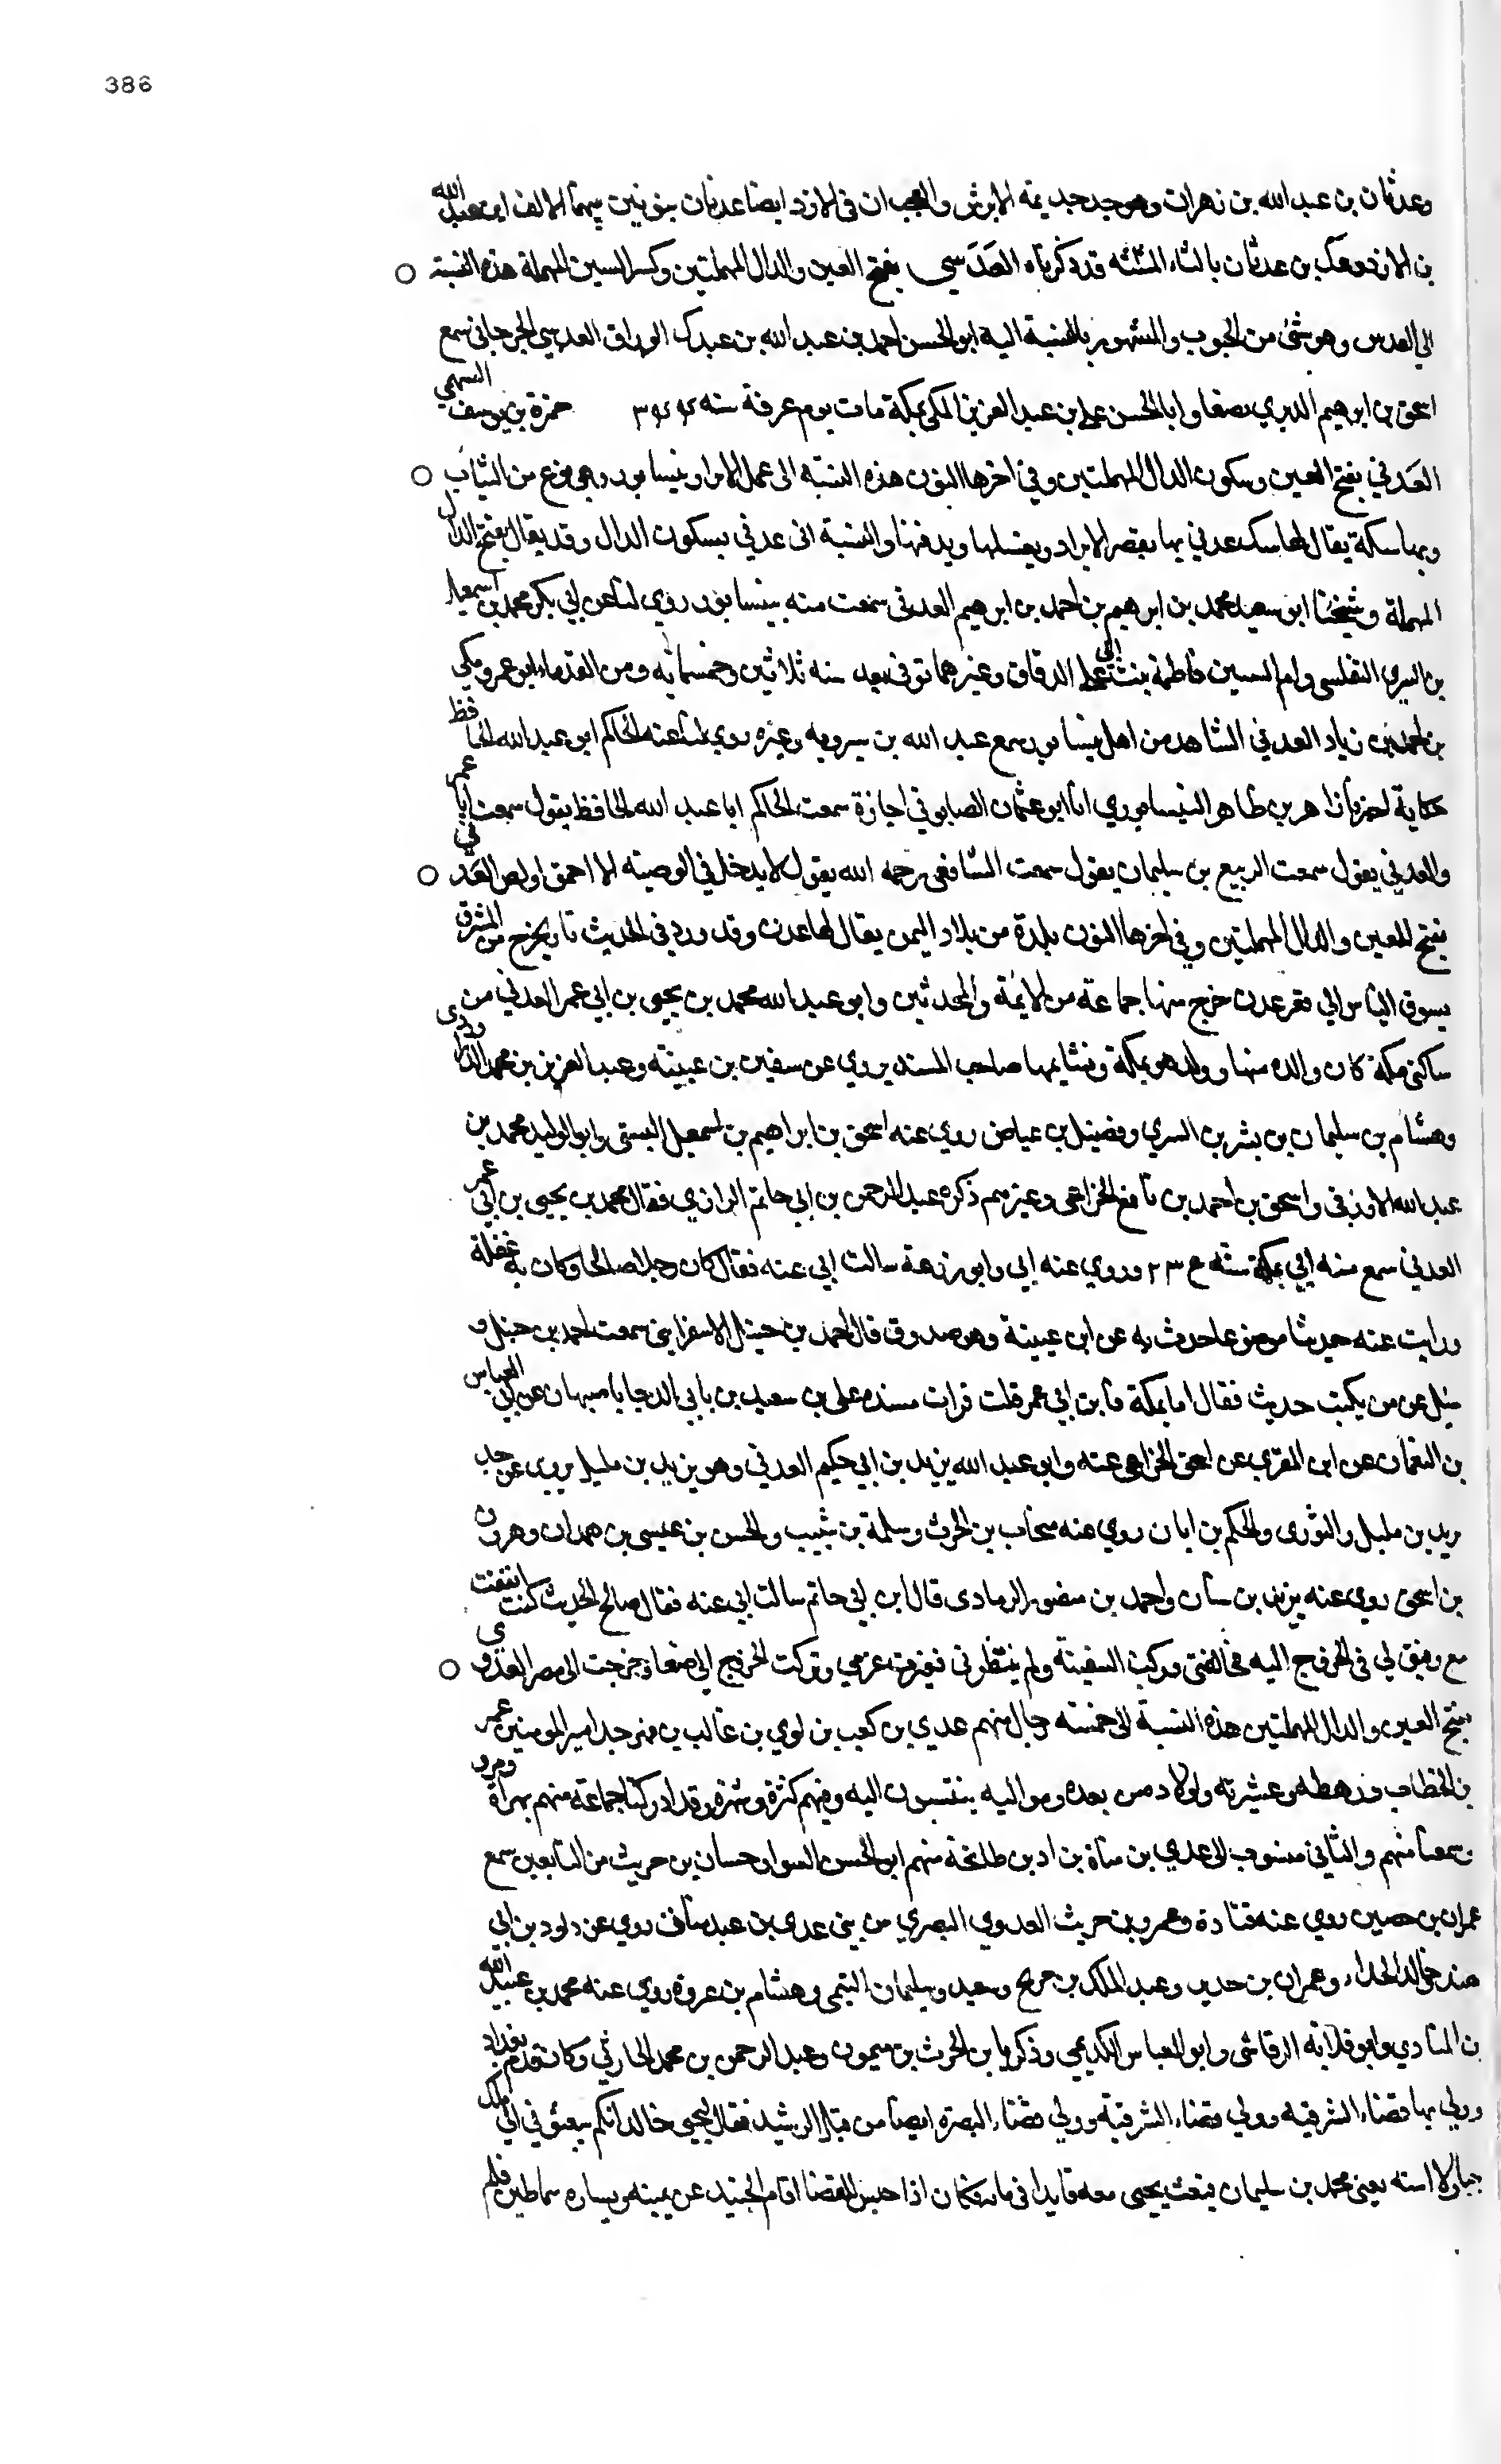 386
وعدثان بن عبد الله بن زهران وهو جد جديمة الابرش والعجب ان في الازد ايضا عدنان بنونين بينهما الالف ابن عبد الله
بن الازد وعك بن عدثان بالثاء المثلثه قد ذكرناه العدسي بفتح العين والدال المهملتين وكسر السين المهملة هذه النسبة
الي العدس وهو شئ من الحبوب والمشهور بالنسبة اليه ابو الحسن احمد بن عبد الله بن عبدك الوراق العدسي الجرجاني سمع
اسحق بن ابرهيم الدبري بصنعا وابا الحسن علي بن عبد العزيز المكي بمكة مات يوم عرفة سنه حمزة بن يوسف السهمي
العدني بفتح العين وسكون الدال المهملتين وفي اخرها النون هذه النسبة الى عمل الابراد بنيسابور وهي نوع من الثياب
وبها سكة يقال لها سكة عدني بها يقصر الابراد ويغسلها ويدقها والنسبة الى عدني بسكون الدال وقد يقال بفتح الدال
المهملة وشيخنا ابو سعيد محمد بن ابرهيم بن احمد بن ابرهيم العدني سمعت منه بنيسابور روي لنا عن ابي بكر محمد بن اسمعيل
بن السري التفلسي وام الحسين فاطمة بنت ابي علي الدقاق وغيرهما توفي بعد سنه ثلاثين وخمسمائه ومن القدماء ابو عمرو مكي
بن احمد بن زياد العدني الشاهد من اهل نيسابور سمع عبد الله بن سيرويه وغيره روي لنا عنه الحاكم ابو عبد الله الحافظ
حكاية اخبرنا زاهر بن طاهر النيسابوري انا ابو عثمان الصابوني اجازة سمعت الحاكم ابا عبد الله الحافظ يقول سمعت ابا عمر
والعدني يقول سمعت الربيع بن سليمان يقول سمعت الشافعي رحمه الله يقول لا يدخل في الوصيه الا احمق او لص العدني
بفتح العين والدال المهملتين وفي اخرها النون بلدة من بلاد اليمن يقال لها عدن وقد ورد في الحديث نار يخرج من المشرق
يسوق الناس الي قعر عدن خرج منها جماعة من الائمة والمحدثين وابو عبد الله محمد بن يحيى بن ابي عمر العدني من
ساكني مكة كان والده منها وولد هو بمكة ونشا بها صاحب المسند يروي عن سفين بن عيينه وعبد العزيز بن محمد الدراوردى
وهشام بن سليمان بن بشر بن السري وفضيل بن عياض روي عنه اسحق بن ابراهيم بن اسمعيل البستي وابو الوليد محمد بن
عبد الله الازرقي واسحق بن احمد بن نافع الخزاعي وغيرهم ذكره عبد الرحمن بن ابي حاتم الرازي فقال محمد بن يحيى بن ابي عمر
العدني سمع منه ابي بمكة سنه وروي عنه ابي وابو زرعة سالت ابي عنه فقال كان رجلا صالحا وكان به غفلة
ورايت عنه حديثا موضوعا حدث به عن ابن عيينة وهو صدوق قال احمد بن حنبل الاسفرايني سمعت احمد بن حنبل و
سئل عن من يكتب حديث فقال اما بمكة فابن ابي عمر قلت قرات مسنده علي بن سعيد بن بابي الدجا باصبهان عن ابي العباس
بن النعمان عن ابن المقري عن اسحق الخزاعي عنه وابو عبد الله يزيد بن ابي حكيم العدني وهو يزيد بن مليل يروي عن جد
يزيد بن مليل والثوري والحكم بن ابان روي عنه منجاب بن الحرث وسلمة بن شبيب والحسن بن عيسى بن همدان وهرون
بن اسحق روي عنه يزيد بن سنان واحمد بن منصور الرمادي قال ابن ابي حاتم سالت ابي عنه فقال صالح الحديث كنت اتفقت
مع رفيق لي في الخروج اليه فخالفني فركب السفينة ولم ينتظرني فيغيرت عزمي وتركت الخروج الي صنعا وخرجت الى مصر العدوى
بفتح العين والدال المهملتين هذه النسبة الى خمسه رجال منهم عدي بن كعب بن لوي بن غالب بن فهر جد امير المومنين عمر
بن الخطاب ورهطه وعشيرته واولاد من بعده ومواليه ينتسبون اليه وفيهم كثرة وشهرة وقد ادركنا جماعة منهم بهراة ومرو
وسمعنا منهم والثاني منسوب الى عدي بن مناة بن اد بن طابخة منهم ابو الحسن السوار حسان بن حريث من التابعين سمع
عمران بن حصين روي عنه قتادة وعمرو بن حريث العدوي البصري من بني عدي بن عبد مناف روي عن داود بن ابي
هند خالد الحذاء وعمران بن حدير وعبد الملك بن جريج وسعيد وسليمان التيمي وهشام بن عروة روي عنه محمد بن عبيد الله
بن المنادي وابو قلابه الرقاشي وابو العباس الكديمي وذكريا بن الحرث بن ميمون وعبد الرحمن بن محمد الحارثي وكان قدم بغداد
وولي بها قضاء الشرقيه وولي قضاء الشرقية وولي قضاء البصرة ايضا من قبل الرشيد فقال ليحيى خالد انكم تبعثوني الى ملك
جبار لا امنه يعني محمد بن سليمان فبعث يحيى معه قايدا في مائه فكان اذا جلس للقضا اقام الجنيد عن يمينه ويساره سماطين فلم